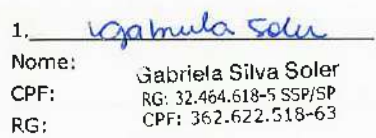 1. Gabriela Soler
Nome: Gabriela Silva Soler
CPF: RG: 32.464.618-5 SSP/SP
RG: CPF: 362.622.518-63